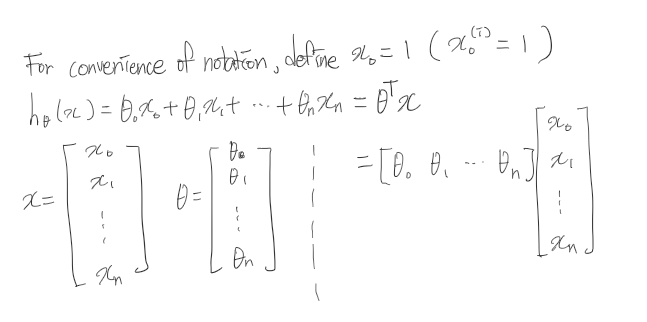 For convenience of notation, define x₀ = 1 ( x₀⁽ⁱ⁾ = 1 )
h_θ(x) = θ₀x₀ + θ₁x₁ + ⋯ + θₙxₙ = θᵀx
x = [ x₀ x₁ ⋮ xₙ ] θ = [ θ₀ θ₁ ⋮ θₙ ] = [θ₀ θ₁ ⋯ θₙ] [ x₀ x₁ ⋮ xₙ ]